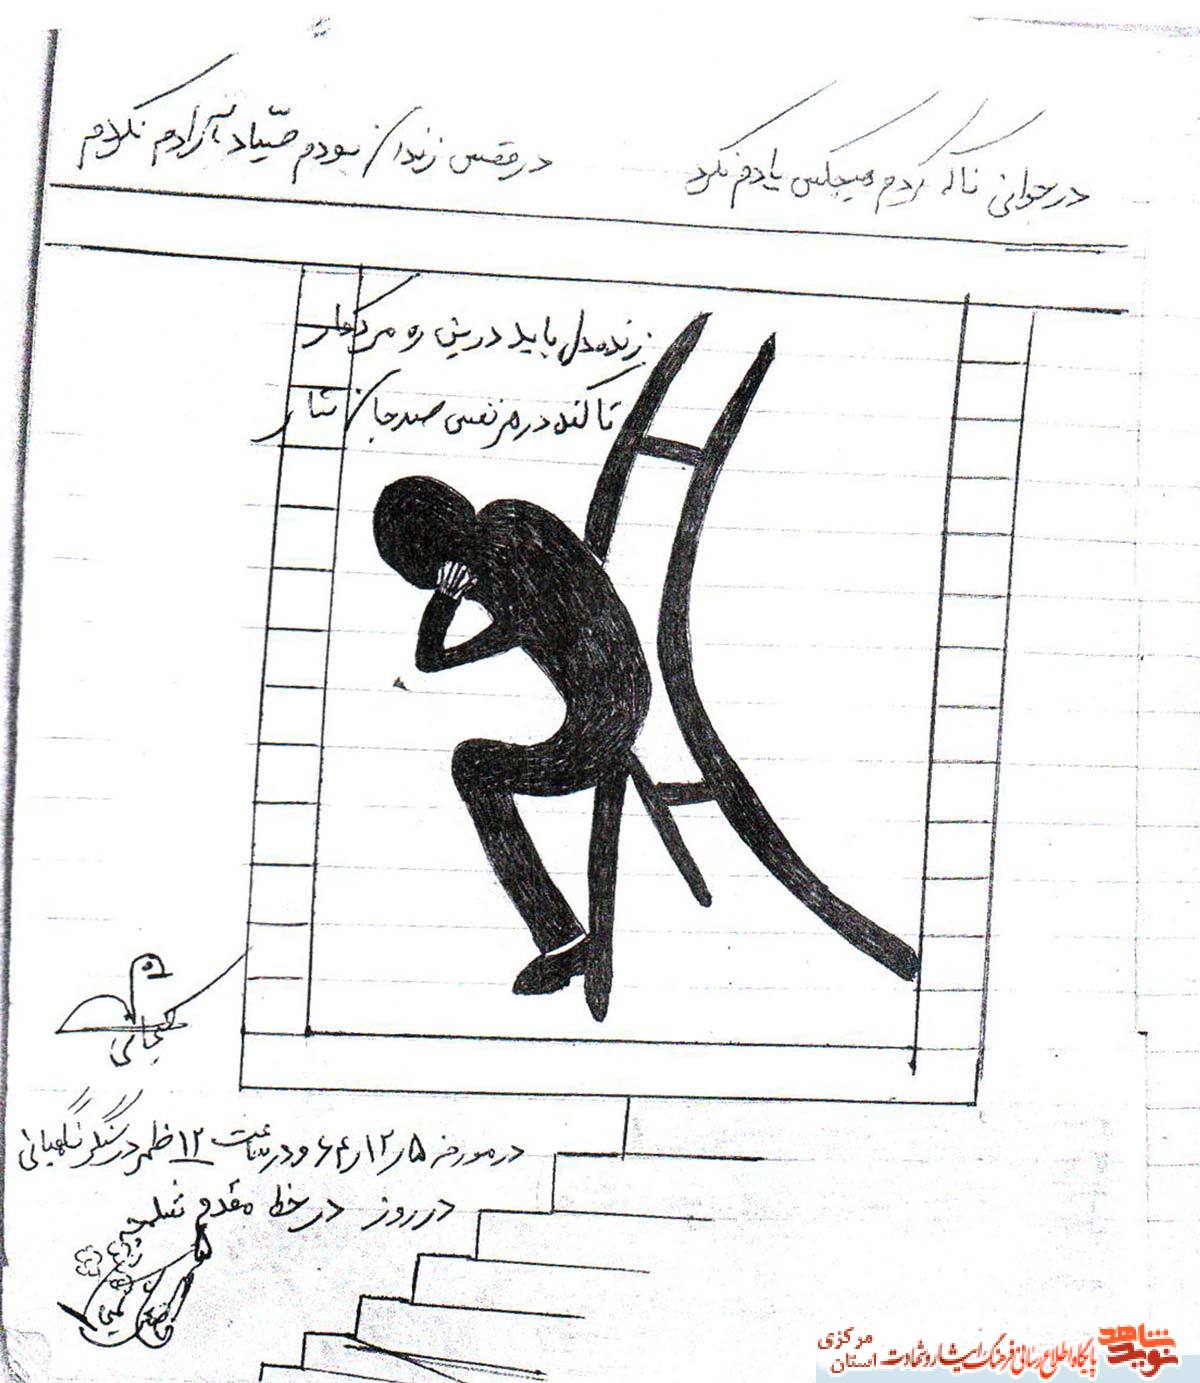 در جوانی ناله کردم هیچکس یادم نکرد
در قفس زندان نبودم صیّاد آزادم نکرد
زنده دل باید در این ره مرد کار
تا کند در هر نفس صد جان نثار
در مورخه ۵ر۱۲ر۶۴ و در ساعت ۱۲ ظهر در سنگر نگهبانی
در روز در خط مقدم شلمچه
نوید شاهد
پایگاه اطلاع رسانی فرهنگ ایثار و شهادت
استان مرکزی